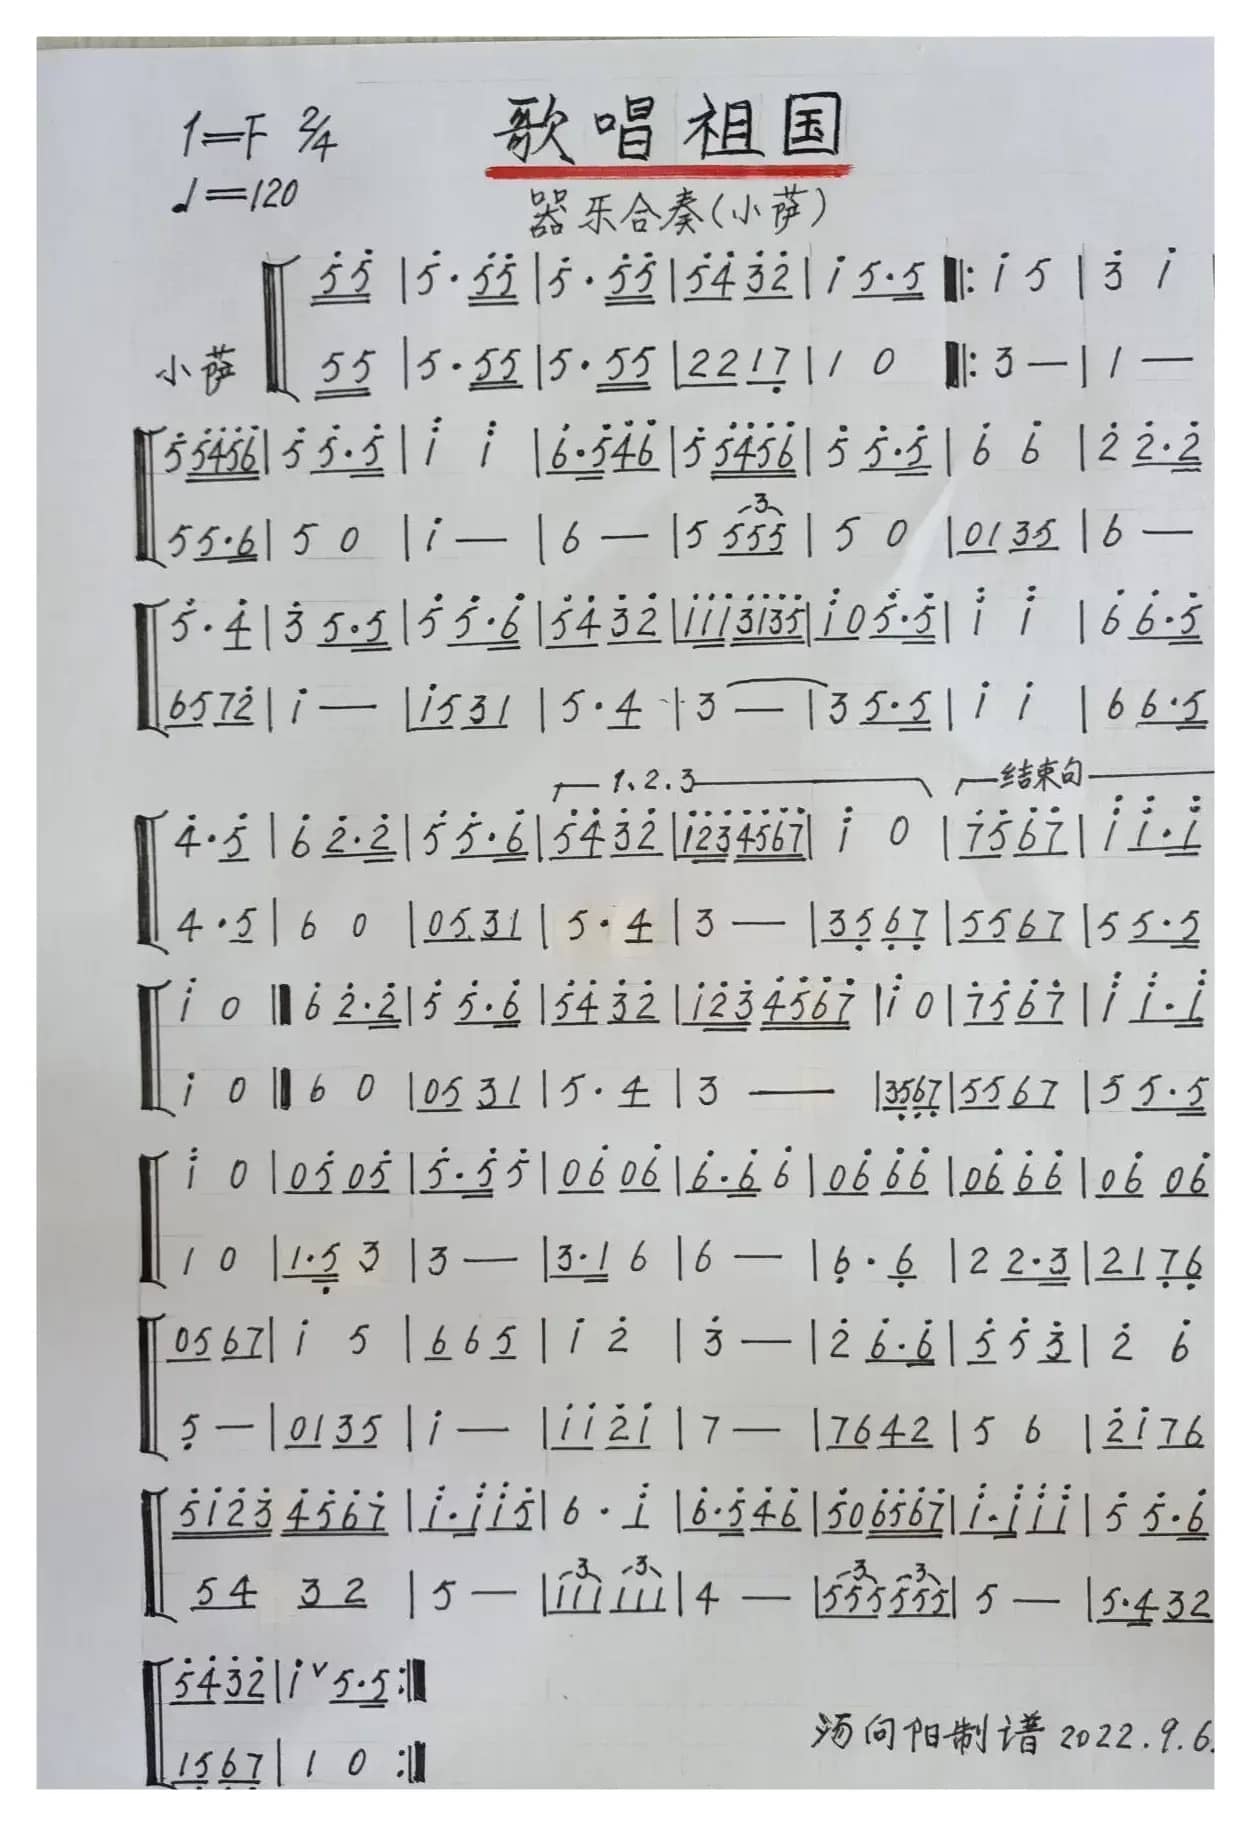 1=F 2/4
歌唱祖国
♩=120
器乐合奏(小萨)
5̇5̇ | 5̇·5̇5̇ | 5̇·5̇5̇ | 5̇4̇3̇2̇ | 1̇ 5·5 ‖: 1̇ 5 | 3̇ 1̇ |
小萨
55 | 5·55 | 5·55 | 2217̣ | 1 0 ‖: 3 — | 1 —
5̇5̇4̇5̇6̇ | 5̇ 5̇·5̇ | 1̈ 1̈ | 6̇·5̇4̇6̇ | 5̇ 5̇4̇5̇6̇ | 5̇ 5̇·5̇ | 6̇ 6̇ | 2̇ 2̇·2̇
55·6 | 5 0 | 1̇ — | 6 — | 5 555 (3) | 5 0 | 0135 | 6 —
5̇·4̇ | 3̇ 5·5 | 5̇ 5̇·6̇ | 5̇4̇3̇2̇ | 1̇1̇1̇3̇1̇3̇5̇ | 1̇0 5̇·5̇ | 1̈ 1̈ | 6̇ 6̇·5̇
6572̇ | 1̇ — | 1̇531 | 5·4 | 3 — | 3 5·5 | 1̇ 1̇ | 6 6·5
1、2、3 结束句
4̇·5̇ | 6̇ 2̇·2̇ | 5̇ 5̇·6̇ | 5̇4̇3̇2̇ | 1̇2̇3̇4̇5̇6̇7̇ | 1̈ 0 | 7̇5̇6̇7̇ | 1̈ 1̈·1̈
4·5 | 6 0 | 0531 | 5·4 | 3 — | 35̣6̣7̣ | 5567 | 5 5·5
1̈ 0 ‖ 6̇ 2̇·2̇ | 5̇ 5̇·6̇ | 5̇4̇3̇2̇ | 1̇2̇3̇4̇5̇6̇7̇ | 1̈ 0 | 7̇5̇6̇7̇ | 1̈ 1̈·1̈
1̇ 0 ‖ 6 0 | 0531 | 5·4 | 3 — | 35̣6̣7̣ | 5567 | 5 5·5
1̈ 0 | 05̇05̇ | 5̇·5̇5̇ | 06̇06̇ | 6̇·6̇6̇ | 06̇6̇6̇ | 06̇6̇6̇ | 06̇06̇
1 0 | 1·5̣ 3 | 3 — | 3·1 6 | 6 — | 6̣·6̣ | 2 2·3 | 217̣6̣
0567 | 1̇ 5 | 665 | 1̇ 2̇ | 3̇ — | 2̇ 6̇·6̇ | 5̇5̇3̇ | 2̇ 6̇
5̣ — | 0135 | 1̇ — | 1̇1̇2̇1̇ | 7 — | 7642 | 5 6 | 2̇1̇76
5̇1̇2̇3̇ 4̇5̇6̇7̇ | 1̈·1̈1̈5̇ | 6·1̈ | 6̇·5̇4̇6̇ | 5̇06̇5̇6̇7̇ | 1̈·1̈1̈1̈ | 5̇ 5̇·6̇
54 32 | 5 — | 111 (3) 111 (3) | 4 — | 555 (3) 555 (3) | 5 — | 5·432
5̇4̇3̇2̇ | 1̇ ∨ 5·5 :‖
汤向阳制谱 2022.9.6.
15̣6̣7̣ | 1 0 :‖